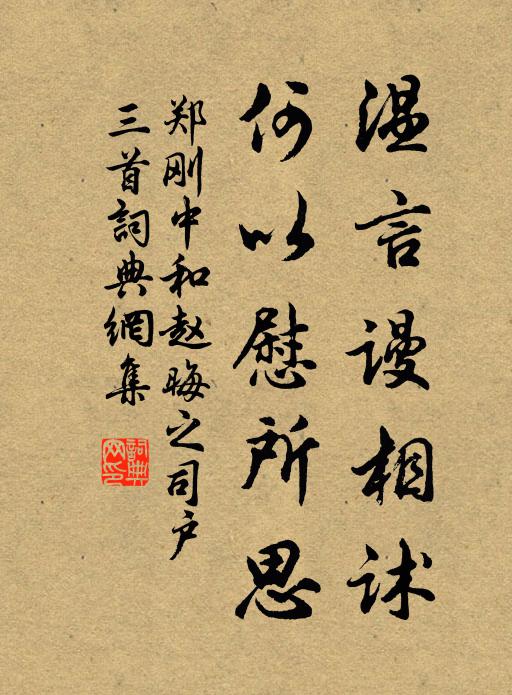 温言谩相訹
何以慰所思
郑刚中和赵晦之司户
三首詞典網集
詞典
网印